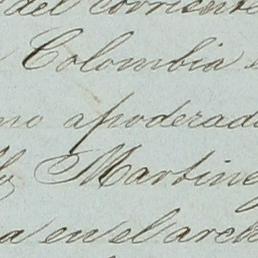 del corriente
Colombia
no apoderado
y Martinez
a en el arch